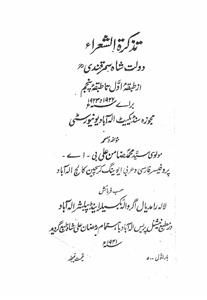 تذکرۃ الشعراء
دولت شاہ سمرقندی
از طبقۂ اول تا طبقۂ پنجم
برائے
مجوزہ سنڈیکیٹ الہ آباد یونیورسٹی
مولوی سید محمد ضامن علی بی - اے -
پروفیسر فارسی و عربی ایونگ کرسچین کالج الہ آباد
حسب فرمائش
لالہ رام دیال اگروالا بکسیلر اینڈ پبلشر الہ آباد
در مطبع نیشنل پریس الہ آباد باہتمام رمضان علی شاہ طبع گردید